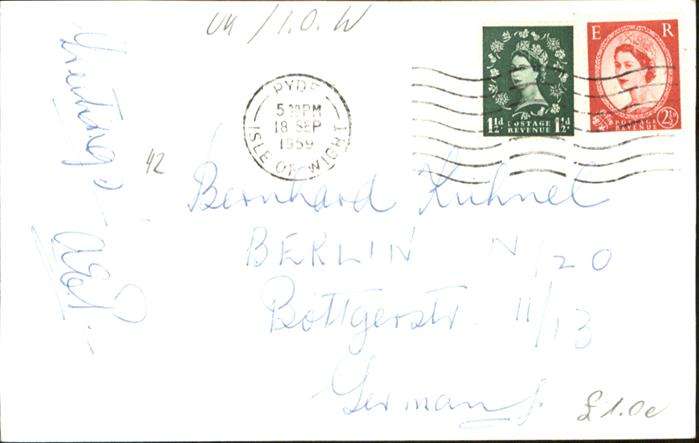 UK / I.O.W
RYDE
5 30 PM
18 SEP
1959
ISLE OF WIGHT
1½d POSTAGE REVENUE 1½d
E R
POSTAGE REVENUE 2½d
Greetings
42
Bernhard Kuhnel
BERLIN N/20
Bottgerstr. 11/13
Germany
£1.0c